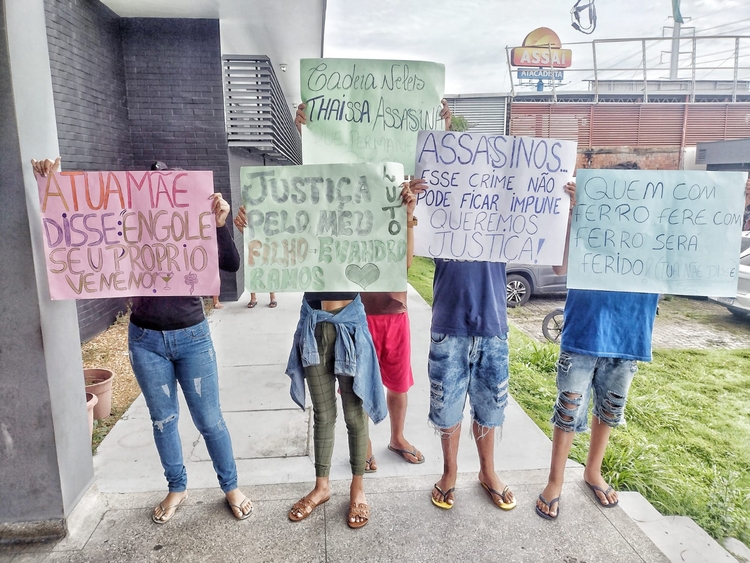 Cadeia neles
THAISSA ASSASINA
ATUA MÃE
DISSE: ENGOLE
SEU PROPRIO
VENENO!
JUSTIÇA
PELO MEU
FILHO - EVANDRO
RAMOS
LUTO
ASSASINOS...
ESSE CRIME NÃO
PODE FICAR IMPUNE
QUEREMOS
JUSTIÇA!
QUEM COM
FERRO FERE COM
FERRO SERA
FERIDO
ASSAÍ
ATACADISTA